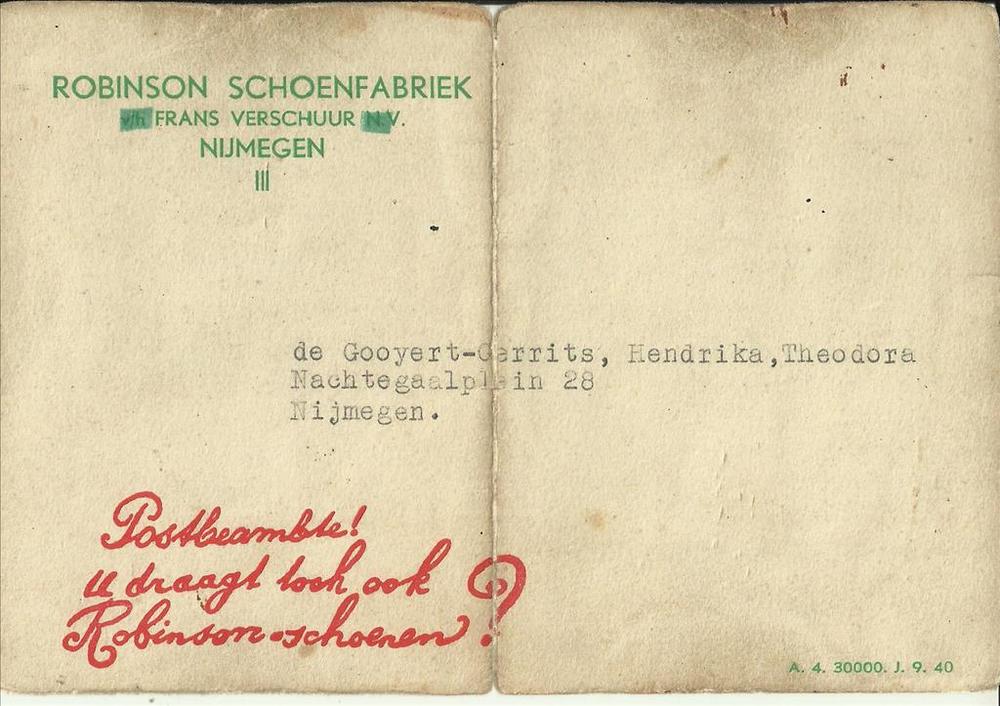 ROBINSON SCHOENFABRIEK
v/h FRANS VERSCHUUR N.V.
NIJMEGEN
III
de Gooyert-Gerrits, Hendrika,Theodora
Nachtegaalplein 28
Nijmegen.
Postbeambte!
u draagt toch ook
Robinson-schoenen?
A. 4. 30000. J. 9. 40